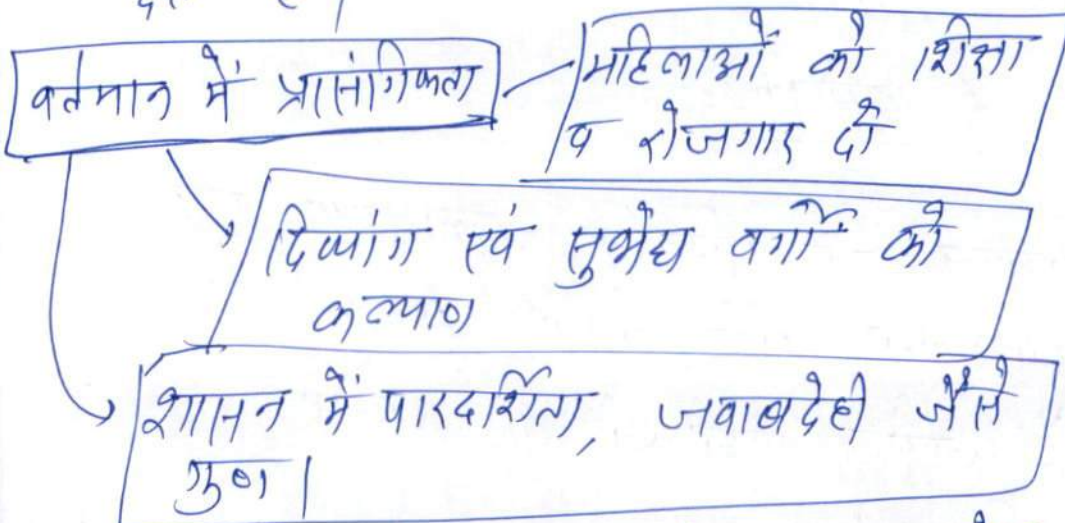 वर्तमान में प्रासंगिकता
महिलाओं को शिक्षा
व रोजगार दी
दिव्यांग एवं सुभेद्य वर्गों को
कल्याण
शासन में पारदर्शिता, जवाबदेही जैसे
गुण।